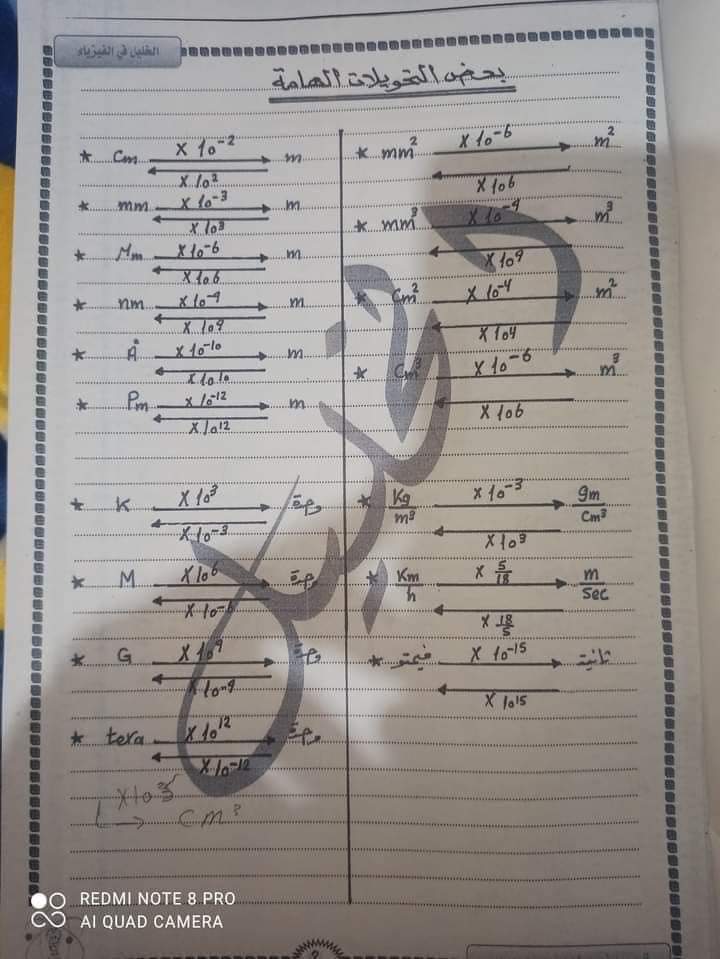 الخليل في الفيزياء
بعض التحويلات الهامة
* Cm × 10⁻² m
× 10²
* mm × 10⁻³ m
× 10³
* μm × 10⁻⁶ m
× 10⁶
* nm × 10⁻⁹ m
× 10⁹
* Å × 10⁻¹⁰ m
× 10¹⁰
* Pm × 10⁻¹² m
× 10¹²
* K × 10³ وحدة
× 10⁻³
* M × 10⁶ وحدة
× 10⁻⁶
* G × 10⁹ وحدة
× 10⁻⁹
* tera × 10¹² وحدة
× 10⁻¹²
Cm³
* mm² × 10⁻⁶ m²
× 10⁶
* mm³ × 10⁻⁹ m³
× 10⁹
* Cm² × 10⁻⁴ m²
× 10⁴
* Cm³ × 10⁻⁶ m³
× 10⁶
* Kg/m³ × 10⁻³ gm/Cm³
× 10³
* Km/h × 5/18 m/Sec
× 18/5
* فيمتو × 10⁻¹⁵ ثانية
× 10¹⁵
REDMI NOTE 8 PRO
AI QUAD CAMERA